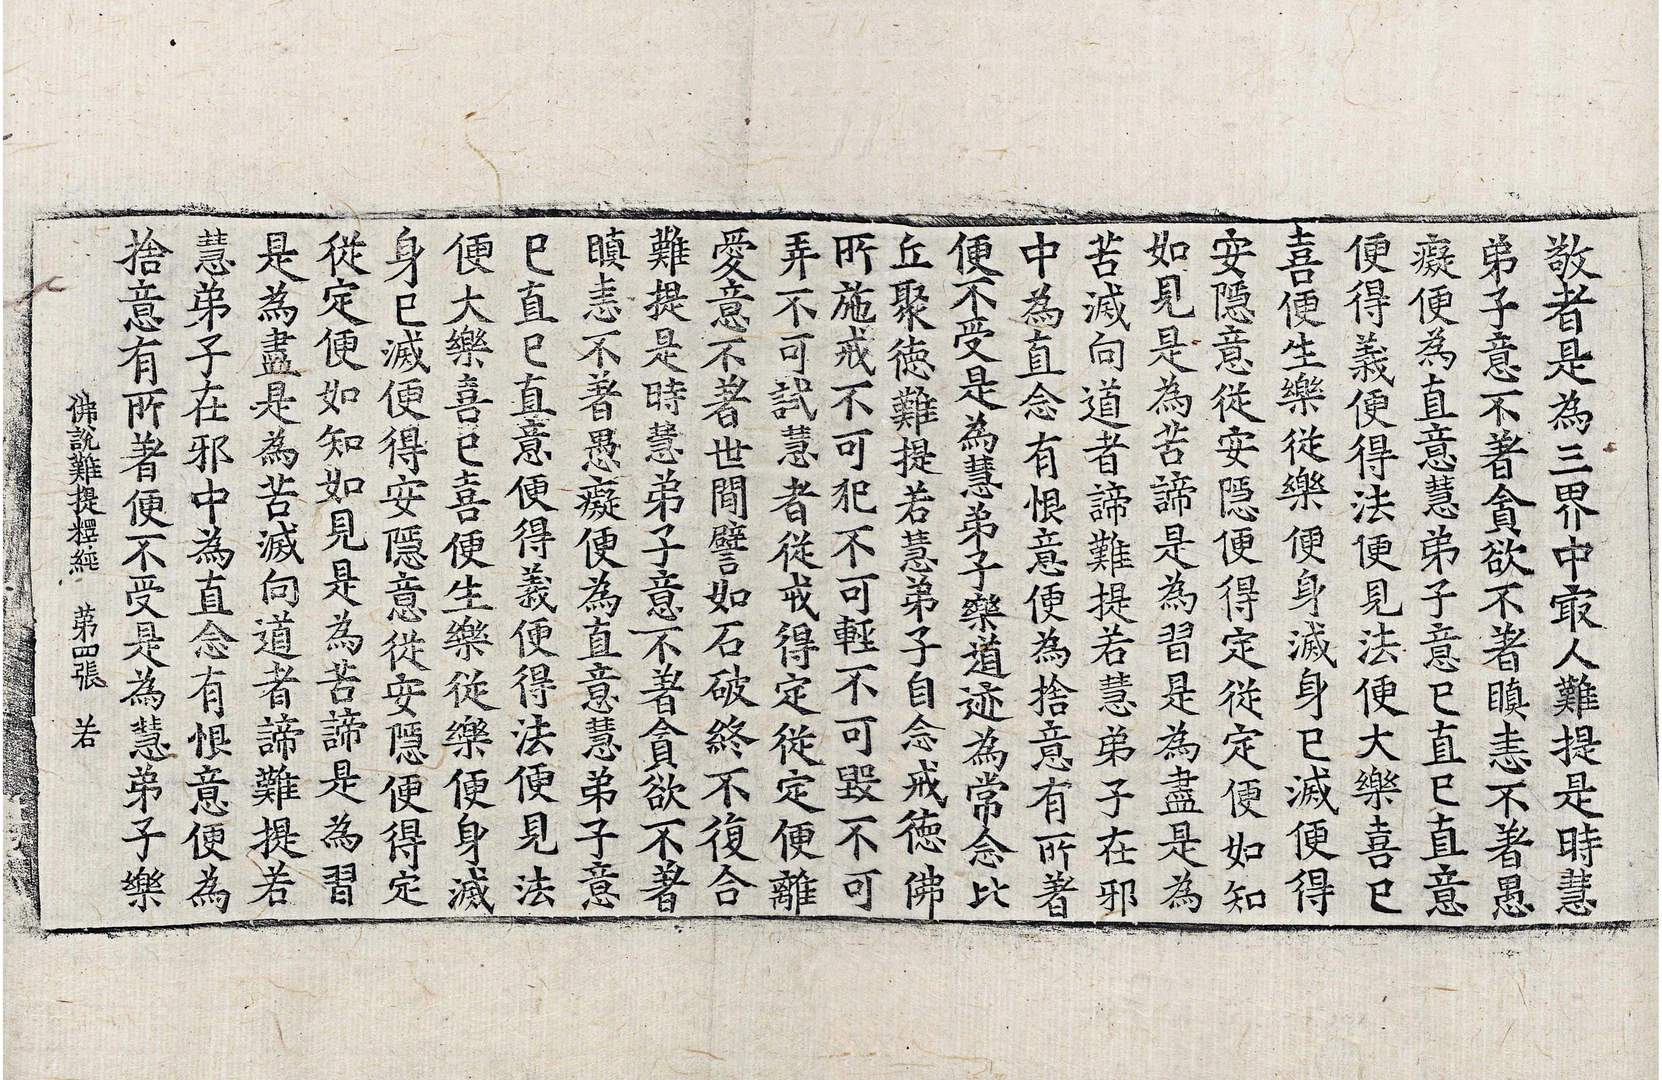 敬者是為三界中冣人難提是時慧
弟子意不著貪欲不著瞋恚不著愚
癡便為直意慧弟子意已直已直意
便得義便得法便見法便大樂喜已
喜便生樂從樂便身滅身已滅便得
安隱意從安隱便得定從定便如知
如見是為苦諦是為習是為盡是為
苦滅向道者諦難提若慧弟子在邪
中為直念有恨意便為捨意有所著
便不受是為慧弟子樂道迹為常念比
丘聚德難提若慧弟子自念戒德佛
所施戒不可犯不可輕不可毀不可
弄不可試慧者從戒得定從定便離
愛意不著世間譬如石破終不復合
難提是時慧弟子意不著貪欲不著
瞋恚不著愚癡便為直意慧弟子意
已直已直意便得義便得法便見法
便大樂喜已喜便生樂從樂便身滅
身已滅便得安隱意從安隱便得定
從定便如知如見是為苦諦是為習
是為盡是為苦滅向道者諦難提若
慧弟子在邪中為直念有恨意便為
捨意有所著便不受是為慧弟子樂
佛說難提釋經　第四張　若